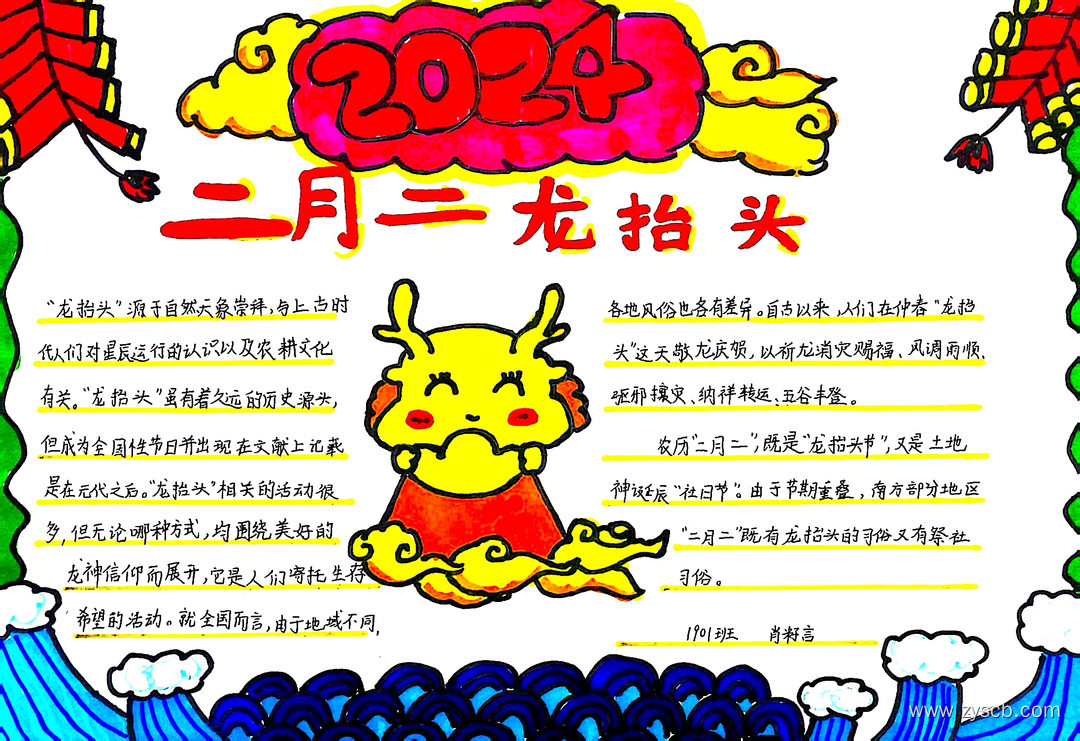 2024
二月二 龙抬头
“龙抬头”源于自然天象崇拜，与上古时
代人们对星辰运行的认识以及农耕文化
有关。“龙抬头”虽有着久远的历史源头，
但成为全国性节日并出现在文献上记载
是在元代之后。“龙抬头”相关的活动很
多，但无论哪种方式，均围绕美好的
龙神信仰而展开，它是人们寄托生存
希望的活动。就全国而言，由于地域不同，
各地风俗也各有差异。自古以来，人们在仲春“龙抬
头”这天敬龙庆贺，以祈龙消灾赐福、风调雨顺、
驱邪攘灾、纳祥转运、五谷丰登。
农历“二月二”，既是“龙抬头节”，又是土地
神诞辰“社日节”。由于节期重叠，南方部分地区
“二月二”既有龙抬头的习俗又有祭社
习俗。
1901班 肖籽言
www.zyscb.com